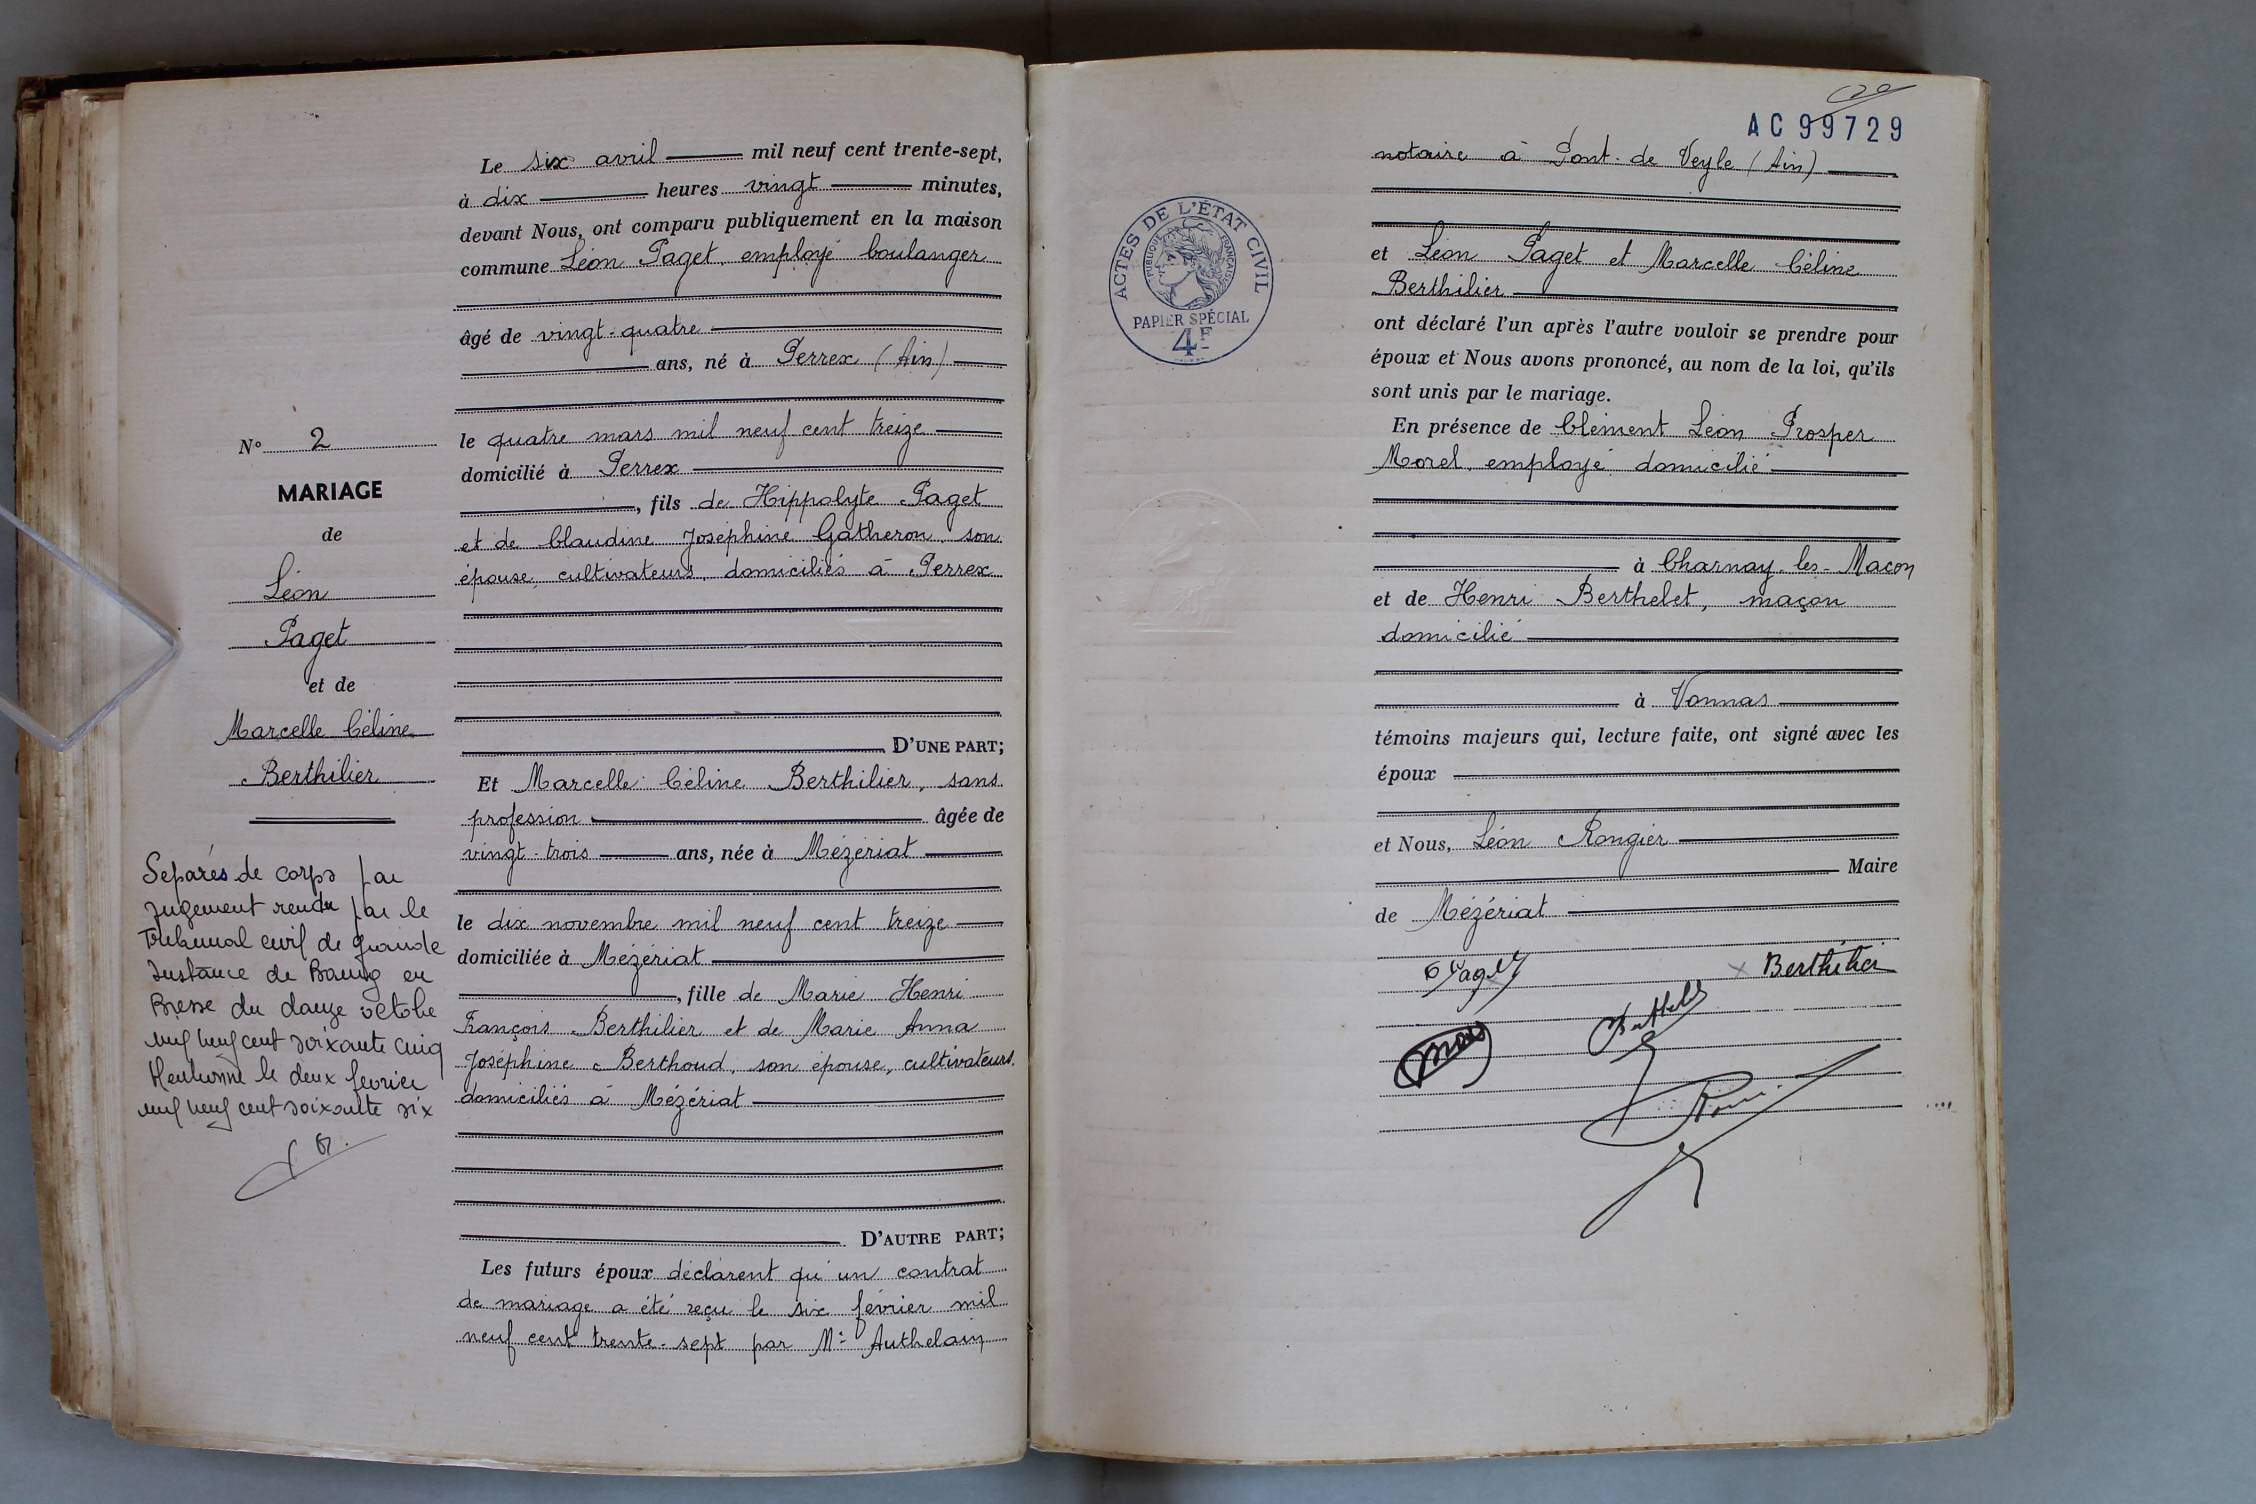 N° 2
MARIAGE
de
Léon
Paget
et de
Marcelle Céline
Berthilier
Séparés de corps par
jugement rendu par le
Tribunal civil de grande
Instance de Bourg en
Bresse du douze octobre
mil neuf cent soixante cinq
Mentionné le deux février
mil neuf cent soixante six
Le six avril mil neuf cent trente-sept,
à dix heures vingt minutes,
devant Nous, ont comparu publiquement en la maison
commune Léon Paget, employé boulanger
âgé de vingt-quatre
ans, né à Perrex (Ain)
le quatre mars mil neuf cent treize
domicilié à Perrex
, fils de Hippolyte Paget
et de Claudine Joséphine Gatheron son
épouse, cultivateurs, domiciliés à Perrex
D'UNE PART;
Et Marcelle Céline Berthilier, sans
profession âgée de
vingt-trois ans, née à Mézériat
le dix novembre mil neuf cent treize
domiciliée à Mézériat
, fille de Marie Henri
François Berthilier et de Marie Anna
Joséphine Berthoud, son épouse, cultivateurs,
domiciliés à Mézériat
D'AUTRE PART;
Les futurs époux déclarent qu'un contrat
de mariage a été reçu le six février mil
neuf cent trente-sept par Me Authelain
AC 99729
notaire à Pont-de Veyle (Ain)
ACTES DE L'ÉTAT CIVIL
RÉPUBLIQUE FRANÇAISE
PAPIER SPÉCIAL
4F
et Léon Paget et Marcelle Céline
Berthilier
ont déclaré l'un après l'autre vouloir se prendre pour
époux et Nous avons prononcé, au nom de la loi, qu'ils
sont unis par le mariage.
En présence de Clément Léon Prosper
Morel, employé domicilié
à Charnay-les-Macon
et de Henri Berthelet, maçon
domicilié
à Vonnas
témoins majeurs qui, lecture faite, ont signé avec les
époux
et Nous, Léon Rongier
Maire
de Mézériat
Paget
Berthilier